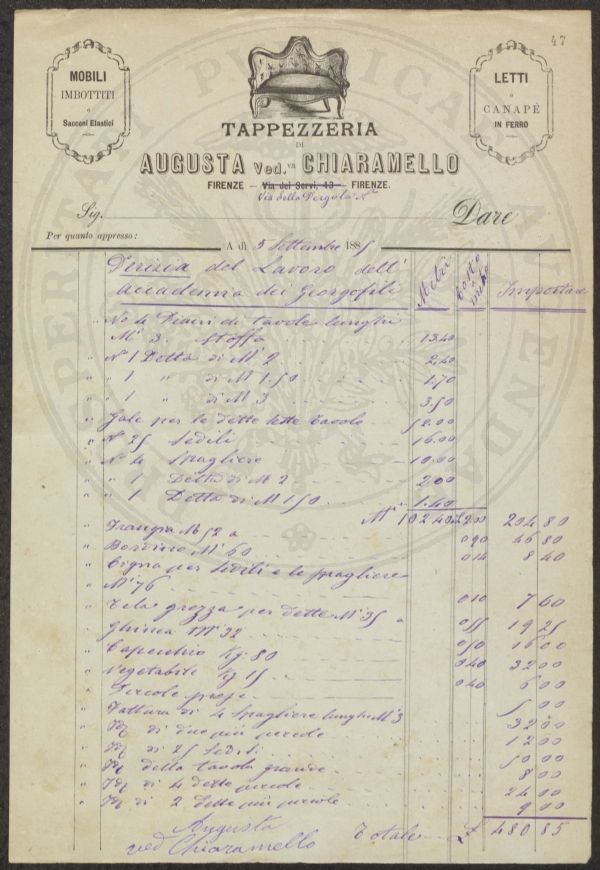 47
MOBILI
IMBOTTITI
e
Sacconi Elastici
LETTI
e
CANAPÈ
IN FERRO
TAPPEZZERIA
DI
AUGUSTA Ved.va CHIARAMELLO
FIRENZE – Via dei Servi, 43 – FIRENZE.
Via della Pergola
Sig.
Dare
Per quanto appresso:
A dì 5 Settembre 1885
Perizia del Lavoro dell' Metri Costo Importare
accademia dei Georgofili
No 4 di tavole lunghi
M 3. Stoffa 13.40
" N 1 Detta di M 2 2.40
" " 1 " di M 1.50 1.70
" " 1 " di M 3 3.50
" per le dette sette tavole 52.00
" N 25 Sedili 16.00
" N 4 Spagliere 10.00
" " 1 Detta di M 2 2.00
" " 1 Detta di M 1 50 1.40
M 102.40 2.00 204 80
" Frangia M 52 a 0 90 46 80
" Bordiero M 60 0 14 8 40
" Cigna per Sedili e le spagliere
" M 76 0 10 7 60
" Tela grezza per dette M 35 a 0 55 19 25
" Ghinea M 32 0 50 16 00
" Capecchio Kg 80 0 40 32 00
" Vegetabile Kg 15 0 40 6 00
" Piccole spese 5 00
" Fattura di 4 Spagliere lunghe M 3 32 00
" Id di due più piccole 12 00
" Id di 25 Sedili 50 00
" Id della tavola grande 8 00
" Id di 4 dette piccole 24 00
" Id di 2 dette più piccole 9 00
Augusta
ved Chiaramello
Totale £ 480 85